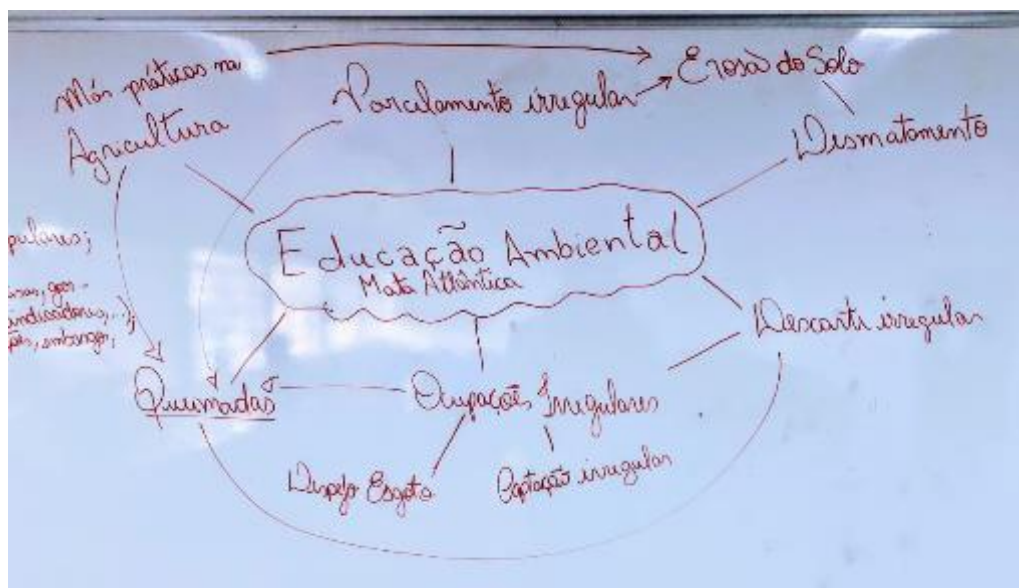 Más práticas na
Agricultura
Parcelamento irregular
Erosão do Solo
Desmatamento
Educação Ambental
Mata Atlântica
pulares;
Descarte irregular
Queimadas
Ocupações Irregulares
Despejo Esgoto
Captação irregular